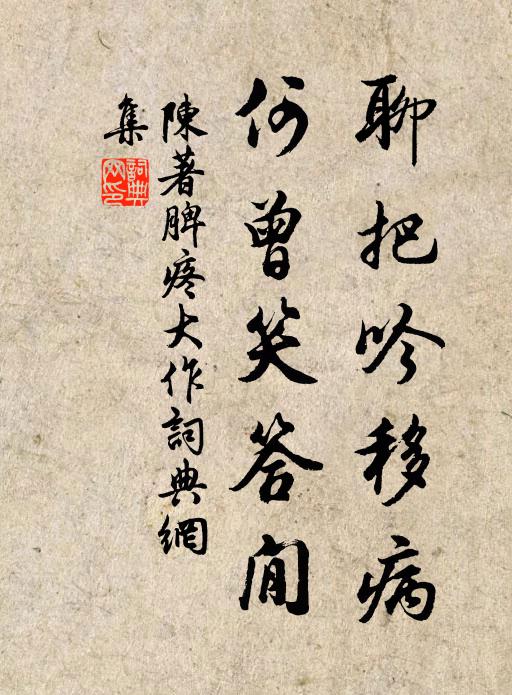 聊把吟移病
何曾笑答閒
陳著脾疼大作詞典網
集
詞典
网印